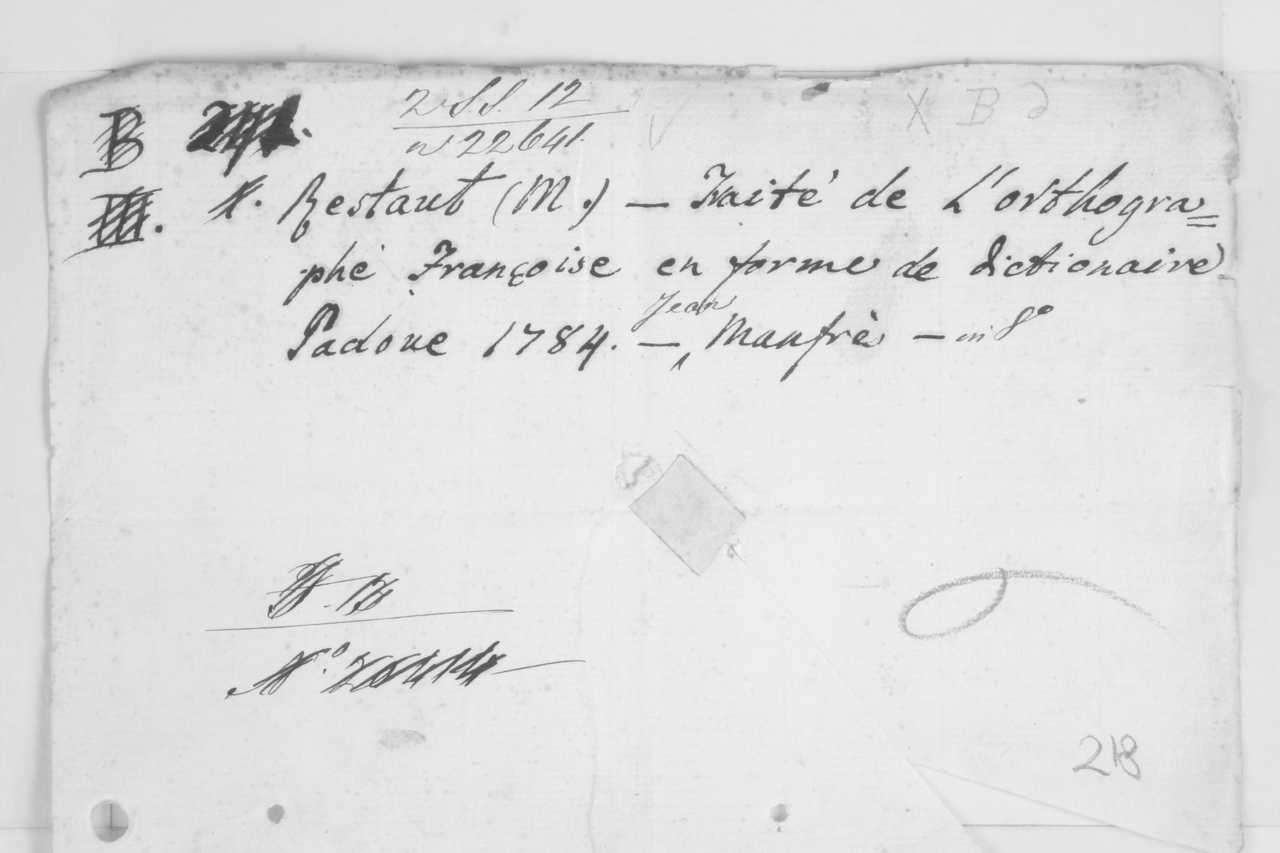 B
2 S.S. 12
n 22641.
X B
III. N. Restaut (M.) — Traité de L'orthogra=
phe Françoise en forme de dictionaire
Jean
Padoue 1784. — Manfrè — in 8º
Nº 26414
218